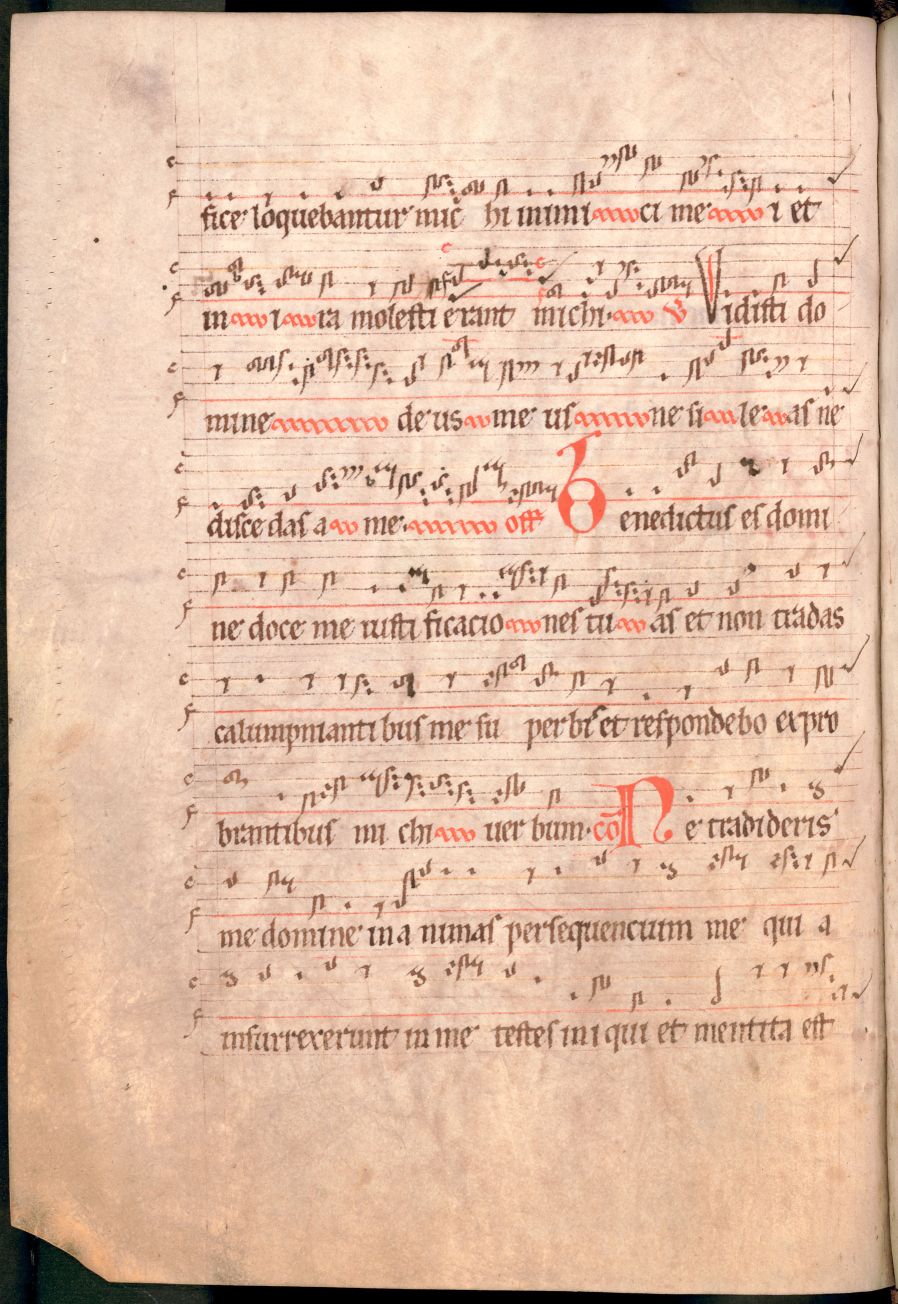 fice loquebantur mic̄ hi inimi ci me i et
in i ia molesti erant michi. V̷ Vidisti do
mine de us me us ne si le as ne
disce das a me. off̄ Benedictus es domi
ne doce me iusti ficacio nes tu as et non tradas
calumpnianti bus me su per bis et respondebo expro
brantibus mi chi uer bum. cō Ne tradideris
me domine in a nimas persequencium me qui a
insurrexerunt in me testes ini qui et mentita est